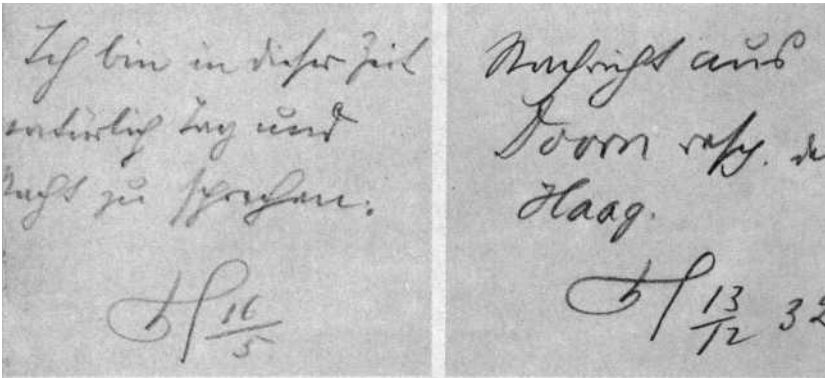 Ich bin in dieser Zeit
natürlich Tag und
Nacht zu sprechen.
16/5
Nachricht aus
Doorn resp. de
Haag.
13/12 32